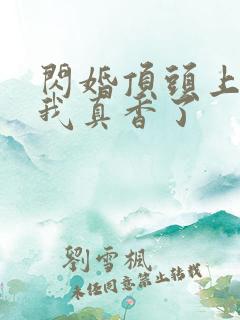 閃婚頂頭上
我真香了
劉雪楓
未经同意禁止转载